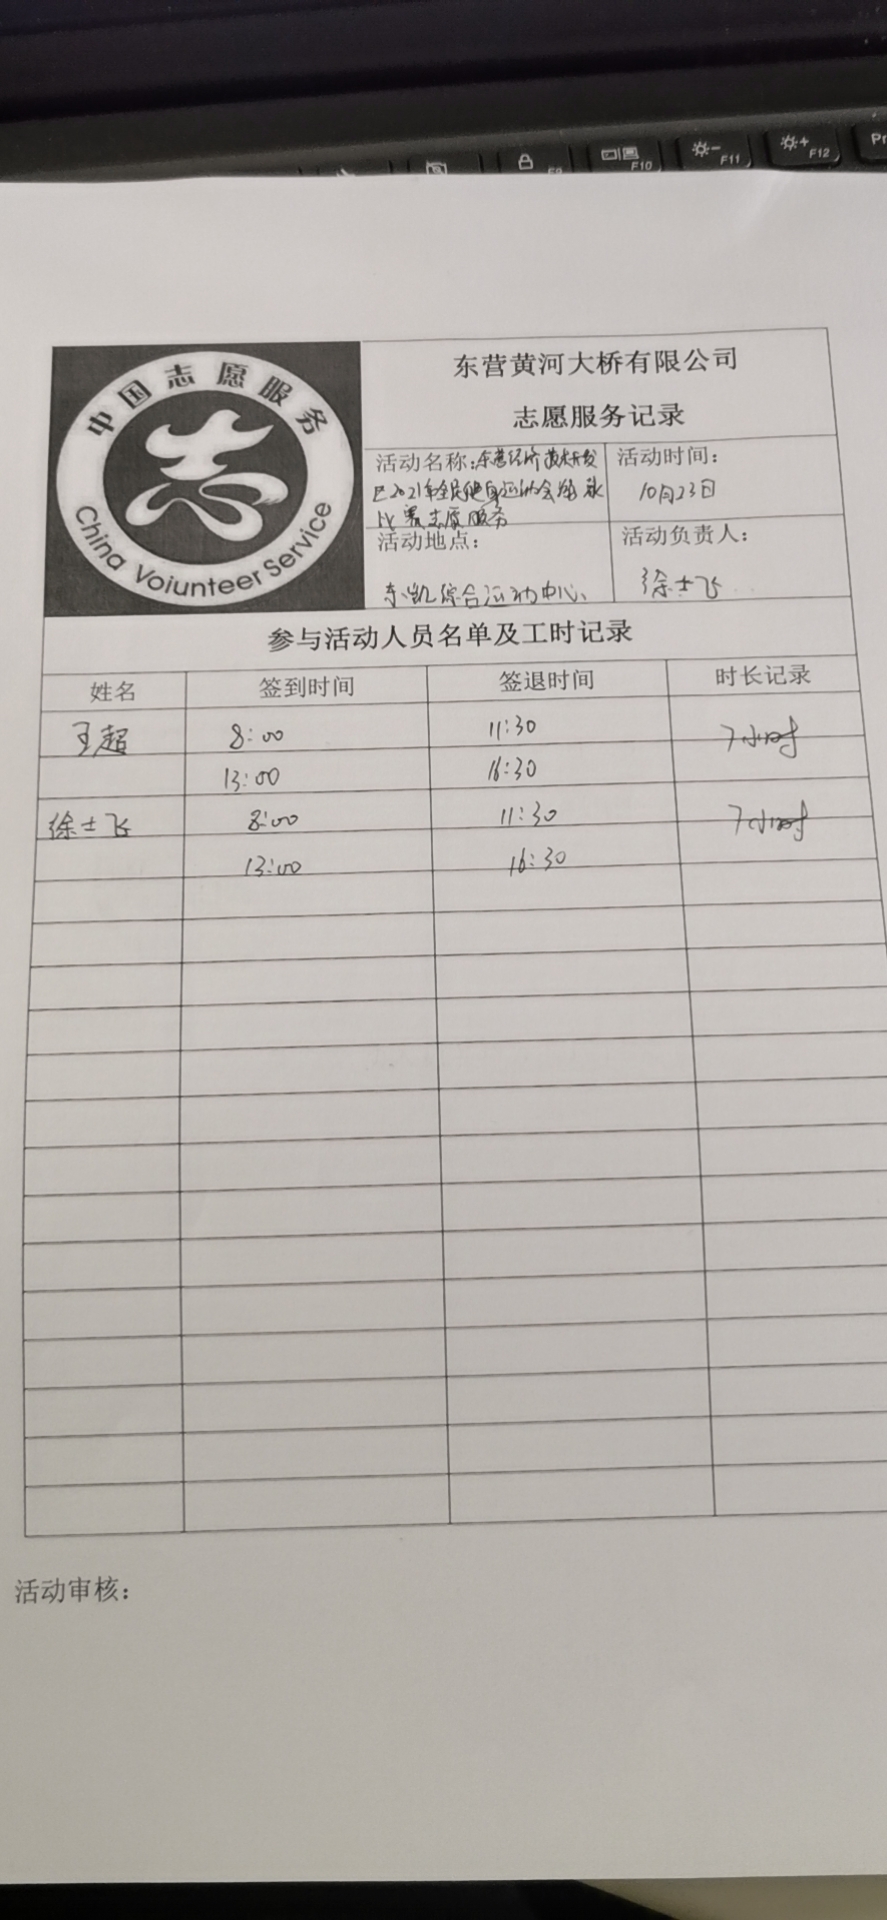 F9
F10
F11
F12
Pr
中国志愿服务
志
China Voiunteer Service
东营黄河大桥有限公司
志愿服务记录
活动名称:东营经济技术开发
区2021年全民健身运动会
比赛志愿服务
活动时间:
10月23日
活动地点:
东凯综合运动中心
活动负责人:
徐士飞
参与活动人员名单及工时记录
姓名 签到时间 签退时间 时长记录
王超 8:00 11:30 7小时
13:00 16:30
徐士飞 8:00 11:30 7小时
13:00 16:30
活动审核: